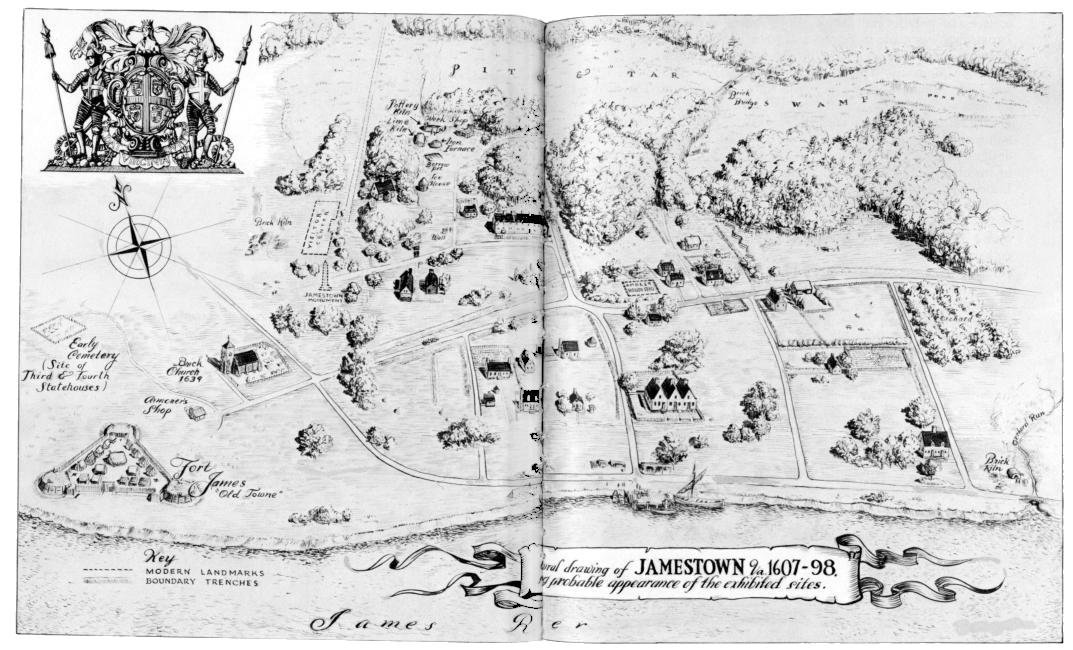 N
PIT & TAR
SWAMP
Brick
Bridge
Pottery
Kiln
Lime
Kiln
Work Shop
Iron
Furnace
Ice
House
Brick Kiln
Well
JAMESTOWN
MONUMENT
Orchard
Early
Cemetery
(Site of
Third & Fourth
Statehouses)
Brick
Church
1639
Armorer's
Shop
Fort
James
"Old Towne"
Brick
Kiln
Orchard Run
Key
MODERN LANDMARKS
BOUNDARY TRENCHES
ural drawing of JAMESTOWN Va. 1607-98,
ng probable appearance of the exhibited sites.
James R er